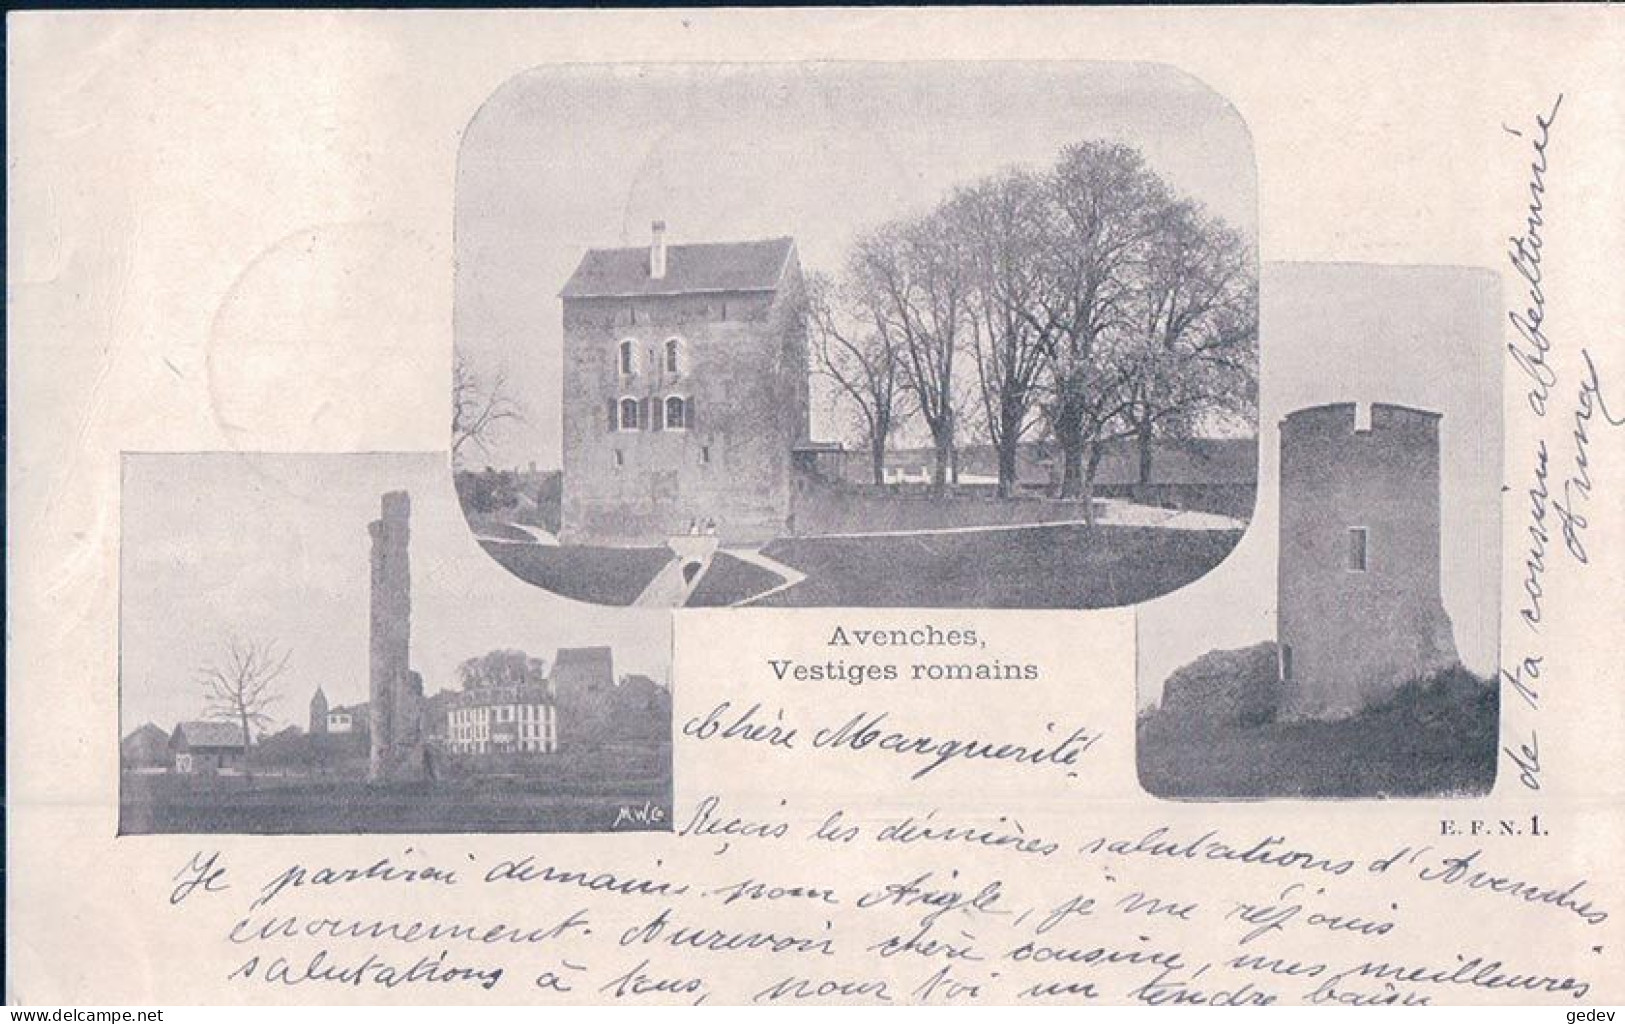 Avenches,
Vestiges romains
Chère Marguerite
Reçois les dernières salutations d'Avenches
Je partirai demain pour Aigle, je me réjouis
énormément. Aurevoir chère cousine, mes meilleures
salutations à tous, pour toi un tendre baiser
de ta cousine affectionnée
Anna
M.W.Co
E. F. N. 1.
www.delcampe.net
gedev